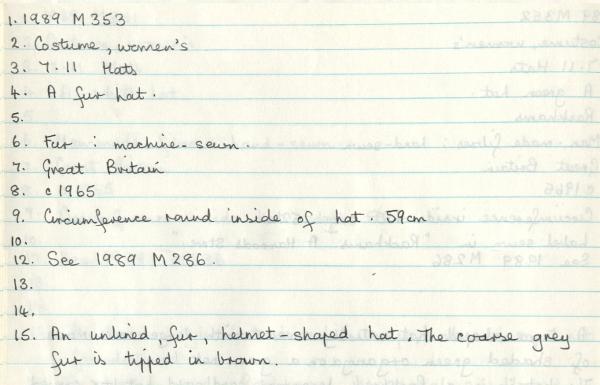 1. 1989 M353
2. Costume, women's
3. 7.11 Hats
4. A fur hat.
5.
6. Fur : machine-sewn.
7. Great Britain
8. c1965
9. Circumference round inside of hat. 59cm
10.
12. See 1989 M286.
13.
14.
15. An unlined, fur, helmet-shaped hat. The coarse grey
fur is tipped in brown.